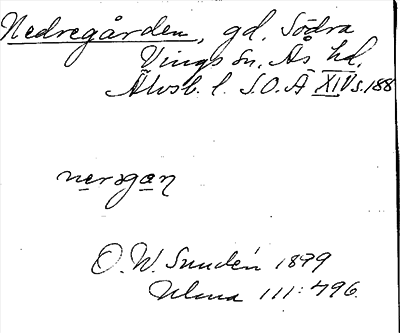 Nedregården, gd. Södra
Vings sn. Ås hd.
Älvsb. l. S.O.Ä XIV s. 188
O. W. Sundén 1899
Ulma 111:496.